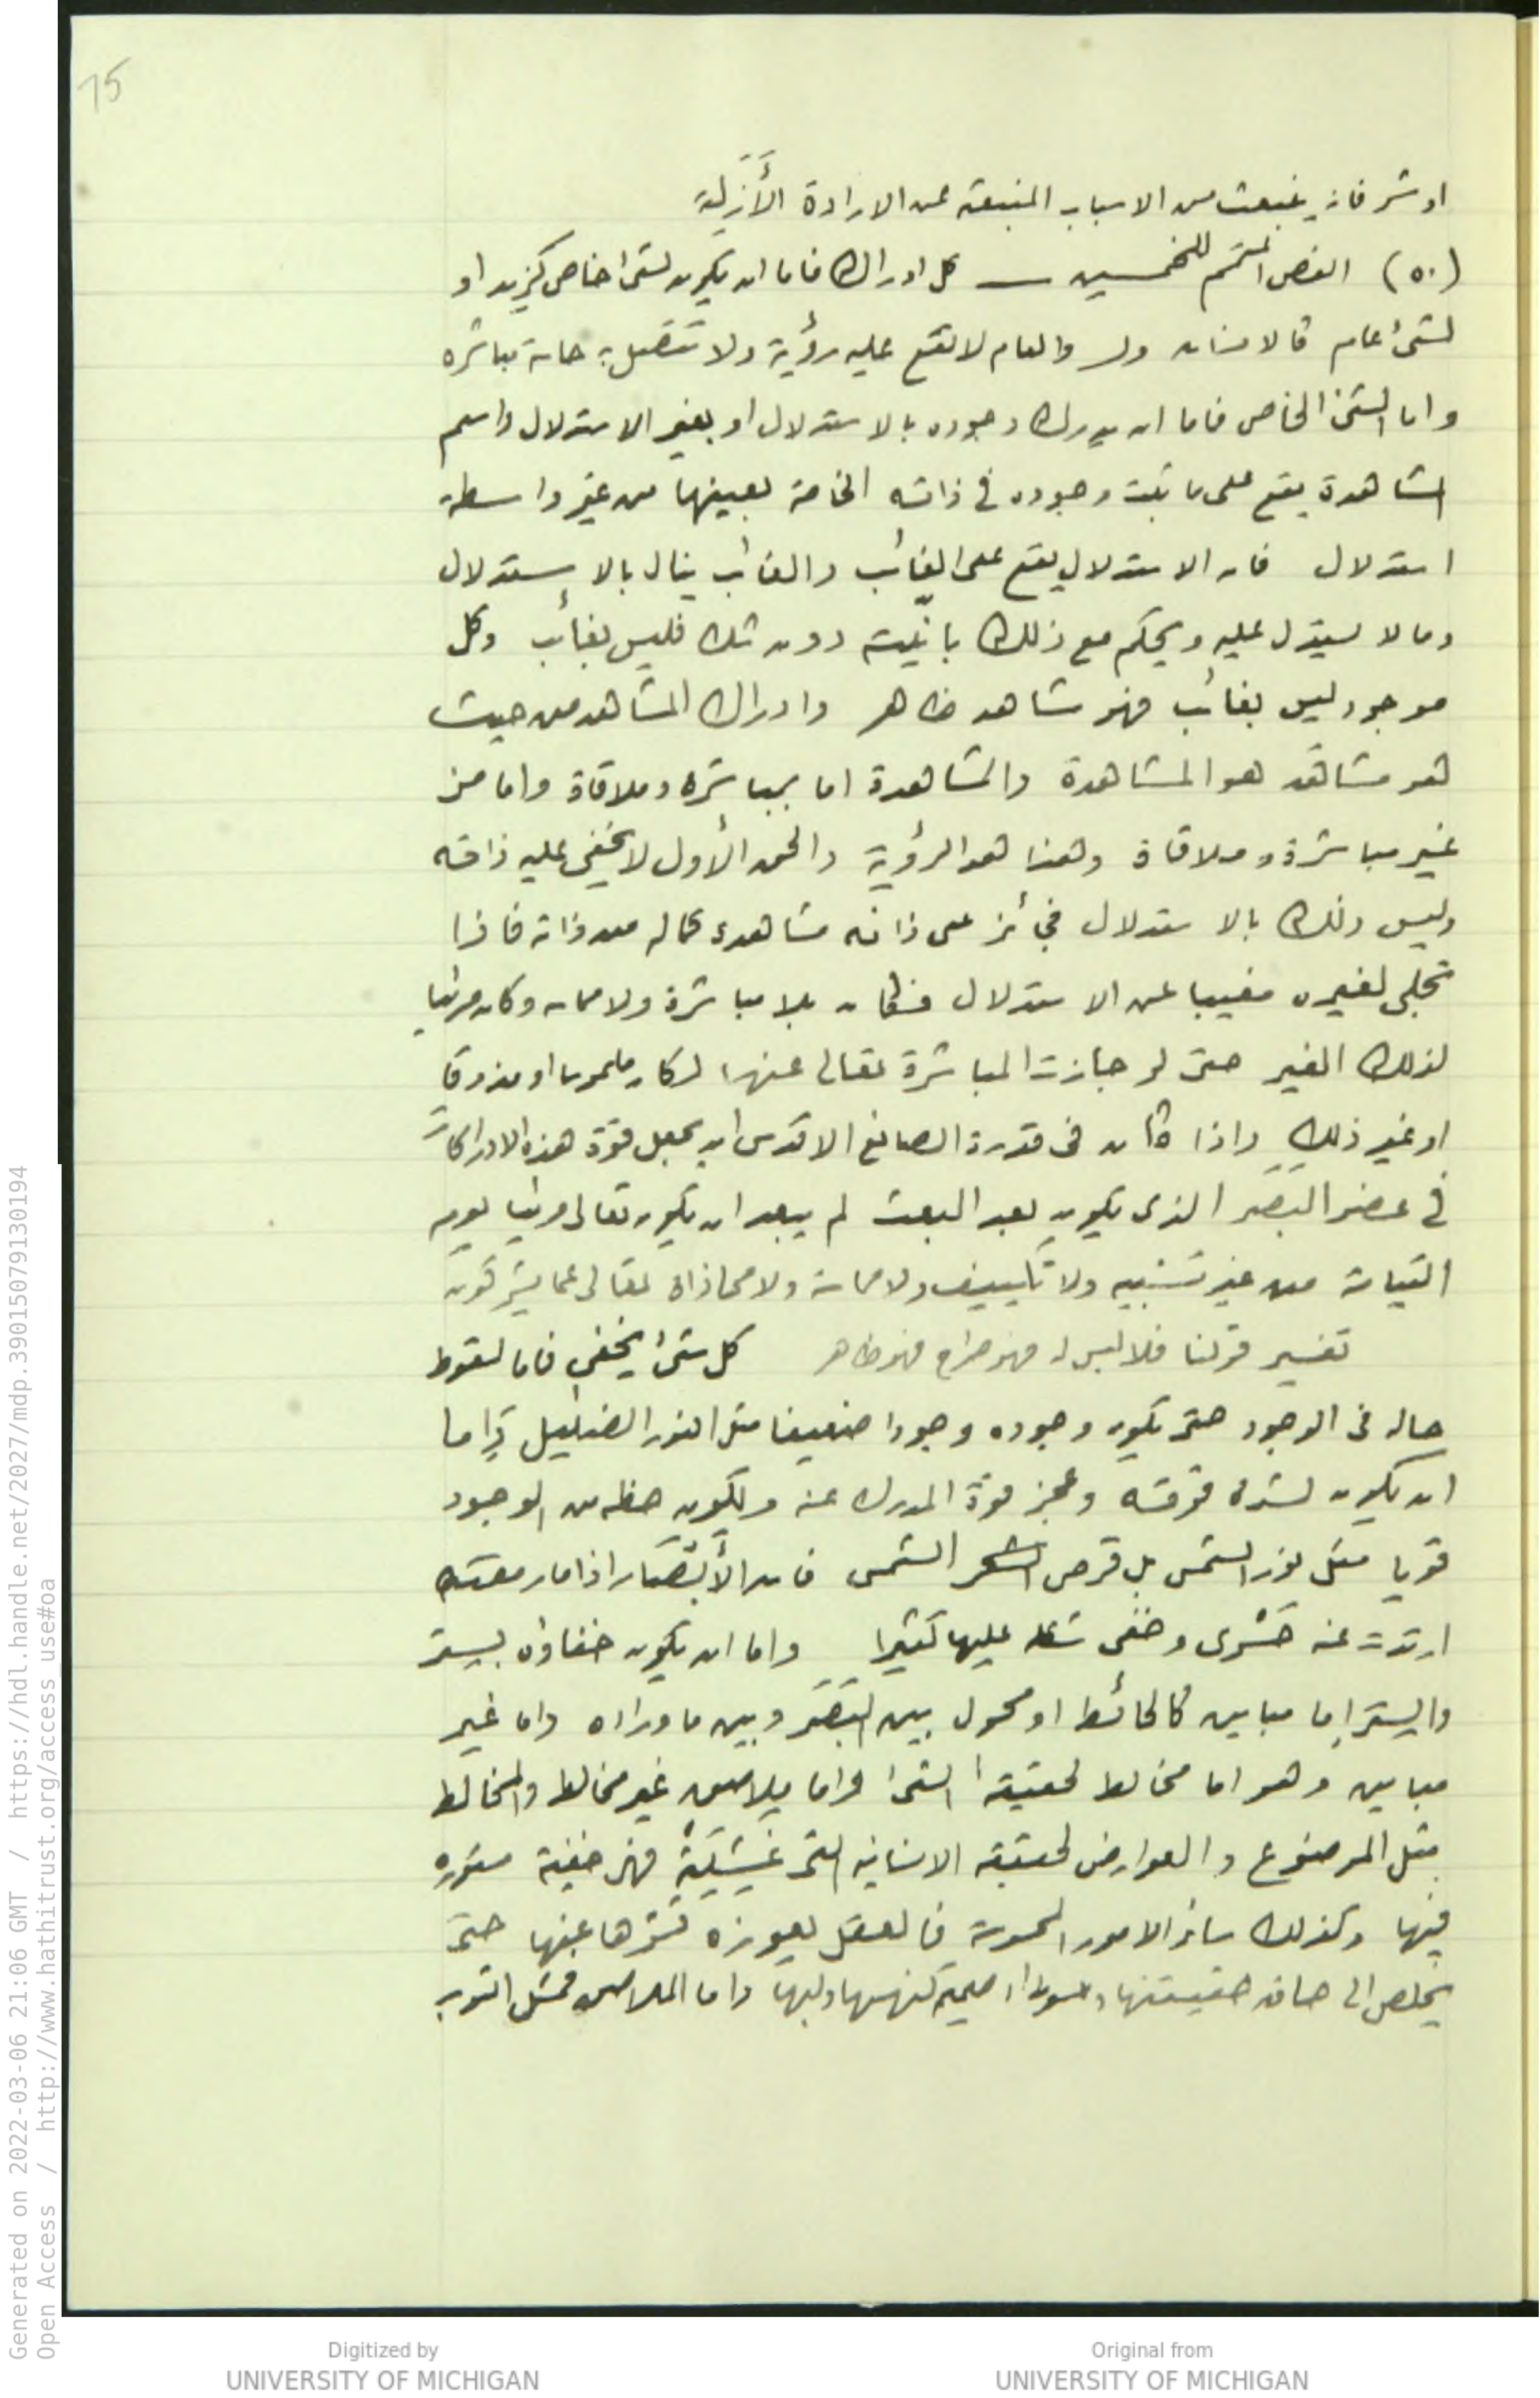 15
او شر فانه ينبعث من الاسباب المنبعثة عن الارادة الأَزَلية
(٥٠) الفص المتمم للخمسين — كل ادراك فاما ان يكون لشئ خاص كزيد او
لشئ عام كالانسان والعام لا تقع عليه رؤية ولا تتصل به حاسة مباشره
واما الشئ الخاص فاما ان يدرك وجوده بالاستدلال او بغير الاستدلال واسم
المشاهدة يقع على ما ثبت وجوده في ذاته الخاصة بعينها من غير واسطة
استدلال فان الاستدلال يقع على الغائب والغائب ينال بالاستدلال
وما لا يستدل عليه ويحكم مع ذلك بانّيته دون شك فليس بغائب وكل
موجود ليس بغائب فهو مشاهد ظاهر وادراك المشاهد من حيث
هو مشاهد هو المشاهدة والمشاهدة اما بمباشره وملاقاة واما من
غير مباشرة وملاقاة وهذا هو الرؤية والحق الأول لا يخفى عليه ذاته
وليس ذلك بالاستدلال فجائز على ذاته مشاهدة كماله من ذاته فاذا
تجلى لغيره مغيبا عن الاستدلال فكان بلا مباشرة ولا مماسه وكان مرئيا
لذلك الغير حتى لو جازت المباشرة تعالى عنها لكان ملموسا او مذوقا
او غير ذلك واذا كان فى قدرة الصانع الاقدس ان يجعل قوة هذه الادراكات
في عضو البَصَر الذى يكون بعد البعث لم يبعد ان يكون تعالى مرئيا يوم
القيامة من غير تشبيه ولا تكييف ولا مماسة ولا محاذاة تعالى عما يشركون
تفسير قولنا فلا لبس له فهو صراح فهو ظاهر كل شئ يخفى فاما لسقوط
حاله فى الوجود حتى يكون وجوده وجودا ضعيفا مثل النور الضئيل وإما
ان يكون لشدة قوته وعجز قوة المدرك عنه ويكون حظه من الوجود
قويا مثل نور الشمس بل قرص الشمس فان الأبْصَار اذا رمقته
ارتدت عنه حَسْرى وخفى شكله عليها كثيرا واما ان يكون خفاؤه بستر
والستر إما مباين كالحائط او يحول بين البَصَر وبين ما وراءه واما غير
مباين وهو اما مخالط لحقيقة الشئ واما ملاصق غير مخالط والمخالط
مثل الموضوع والعوارض لحقيقة الانسانيه التى غشيَتْهُ فهى خفية مستوره
فيها وكذلك سائر الامور المحسوسة فالعقل يعوزه قشرها عنها حتى
يخلص الى حاق حقيقتها كنهها ولبها واما الملاصق فمثل الثوب
Generated on 2022-03-06 21:06 GMT / https://hdl.handle.net/2027/mdp.39015079130194
Open Access / http://www.hathitrust.org/access_use#oa
Digitized by
UNIVERSITY OF MICHIGAN
Original from
UNIVERSITY OF MICHIGAN